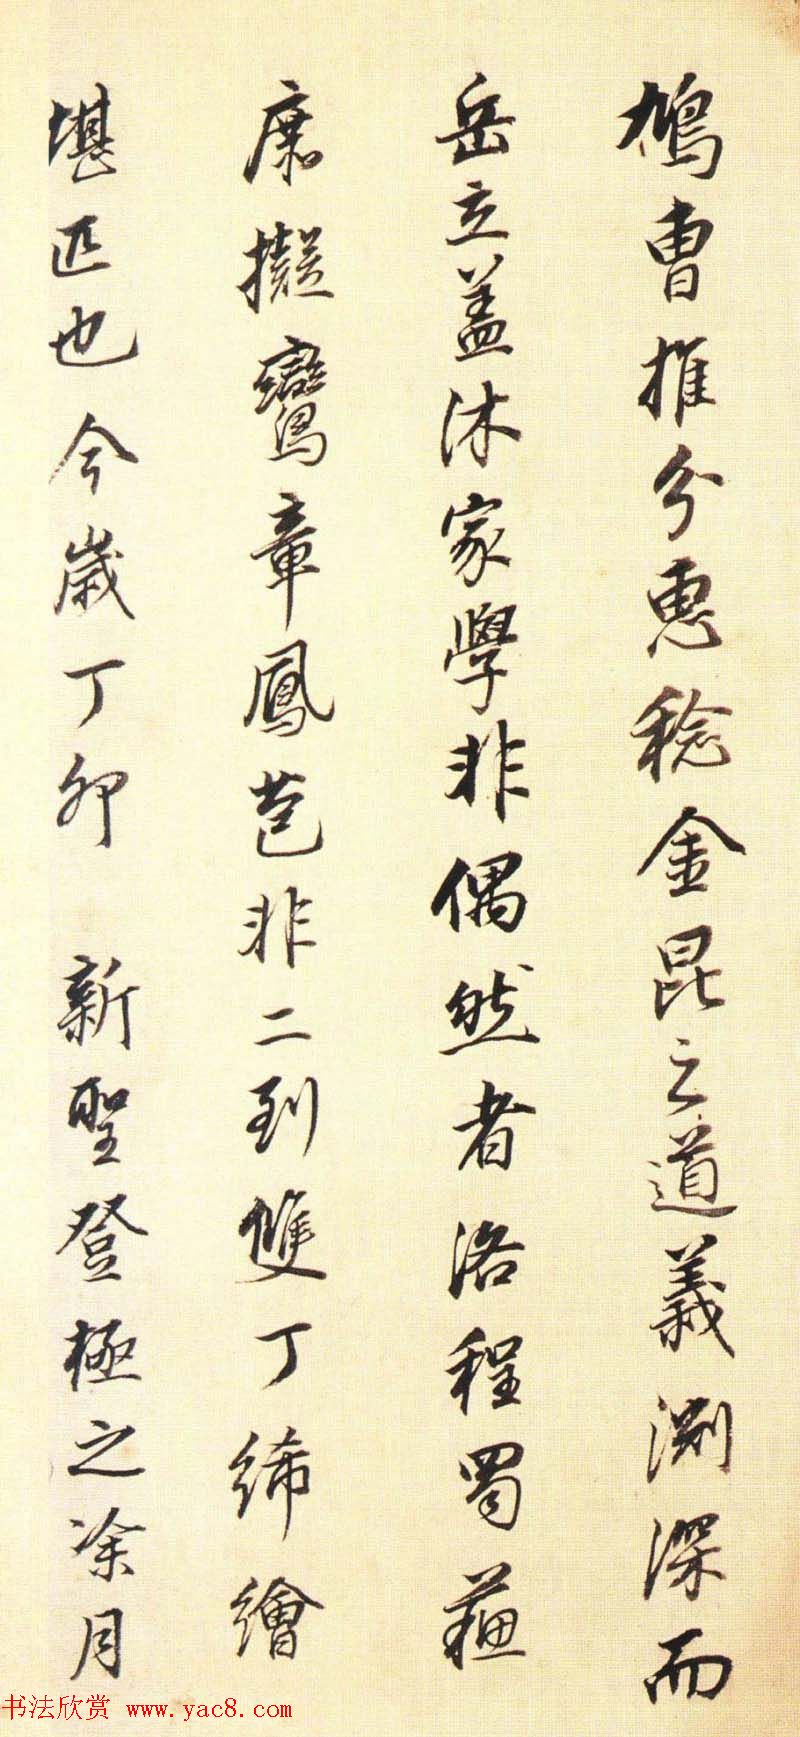 鳩曹推分惠稔金昆之道義淵深而
岳立蓋沐家學非偶然者洛程蜀蘓
庶擬鸞章鳳苞非二到雙丁絺繪
堪匹也今歲丁卯 新聖登極之涂月
书法欣赏 www.yac8.com